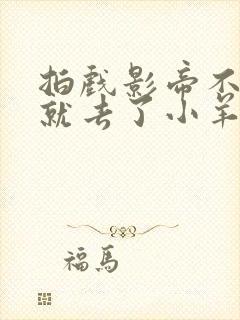 拍戏影帝不
就去了小羊
福馬